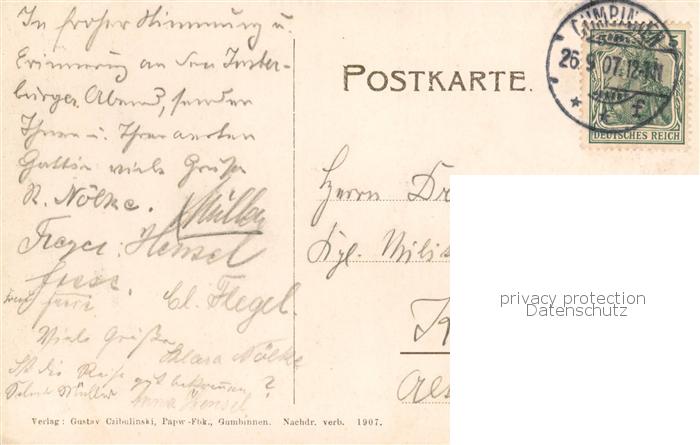 In froher Stimmung u.
Erinnerung an den Inster-
burger Abend, senden
Ihnen u. Ihrer werten
Gattin viele Grüße
R. Nölke. Müller
Hensel
Cl. Flegel.
Viele Grüße
Klara Nölke
Ist die Reise gut bekommen?
Selma Müller Anna Hensel
Verlag: Gustav Czibulinski, Papw-Fbk., Gumbinnen. Nachdr. verb. 1907.
POSTKARTE.
GUMBINNEN
26.9.07.12-1N
* f
5
DEUTSCHES REICH
Herrn Dr
Kgl. Milit
K
privacy protection
Datenschutz